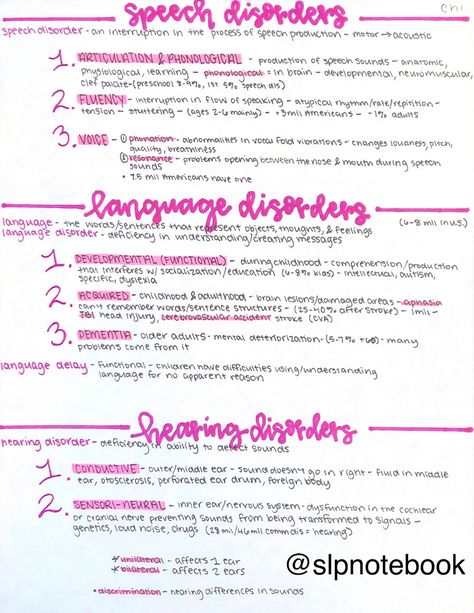 ch 1
speech disorders
speech disorder - an interruption in the process of speech production - motor → acoustic
1. ARTICULATION & PHONOLOGICAL - production of speech sounds - anatomic,
physiological, learning - phonological = in brain - developmental, neuromuscular,
clef palate - (preschool 8-9%, 1st 5% speech dis)
2. FLUENCY - interruption in flow of speaking - atypical rhythm/rate/repitition -
tension - stuttering - (ages 2-6 mainly) - +3mil Americans - ~1% adults
3. VOICE - ① phonation - abnormalities in vocal fold vibrations - changes loudness, pitch,
quality, breathiness
② resonance - problems opening between the nose & mouth during speech
sounds
• 7.5 mil Americans have one
language disorders
(6-8 mil in u.s.)
language - the words/sentences that represent objects, thoughts, & feelings
language disorder - deficiency in understanding/creating messages
1. DEVELOPMENTAL (FUNCTIONAL) - during childhood - comprehension/production
that interferes w/ socialization/education (6-8% kids) - intellectual, autism,
specific, dyslexia
2. ACQUIRED - childhood & adulthood - brain lesions/damaged areas - aphasia
can't remember words/sentence structures - (25-40% after stroke) - 1mil -
TBI head injury, cerebrovascular accident stroke (CVA)
3. DEMENTIA - older adults - mental deteriorization - (5-7% +60) - many
problems come from it
language delay - functional - children have difficulties using/understanding
language for no apparent reason
hearing disorders
hearing disorder - deficiency in ability to detect sounds
1. CONDUCTIVE - outer/middle ear - sound doesn't go in right - fluid in middle
ear, otosclerosis, perforated ear drum, foreign body
2. SENSORI-NEURAL - inner ear/nervous system - dysfunction in the cochlear
or cranial nerve preventing sounds from being transformed to signals -
genetics, loud noise, drugs (28 mil/46 mil comm dis = hearing)
* unilateral - affects 1 ear
* bilateral - affects 2 ears
• discrimination - hearing differences in sounds
@slpnotebook